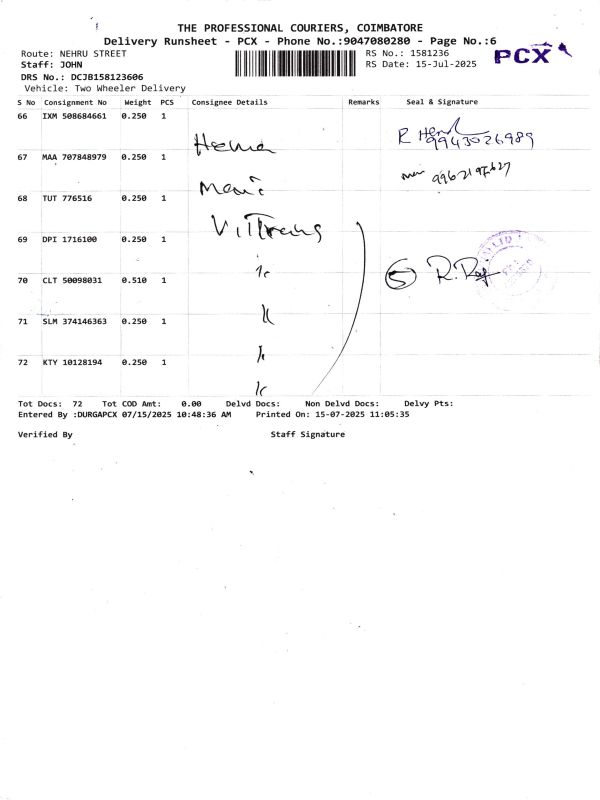 THE PROFESSIONAL COURIERS, COIMBATORE
Delivery Runsheet - PCX - Phone No.:9047080280 - Page No.:6
Route: NEHRU STREET
RS No.: 1581236
PCX
Staff: JOHN
RS Date: 15-Jul-2025
DRS No.: DCJB158123606
Vehicle: Two Wheeler Delivery
S No Consignment No Weight PCS Consignee Details Remarks Seal & Signature
66 IXM 508684661 0.250 1 Hema R Hem
9943026989
67 MAA 707848979 0.250 1 Mani
68 TUT 776516 0.250 1
69 DPI 1716100 0.250 1
70 CLT 50098031 0.510 1 5 R.Raj
71 SLM 374146363 0.250 1
72 KTY 10128194 0.250 1
Tot Docs: 72 Tot COD Amt: 0.00 Delvd Docs: Non Delvd Docs: Delvy Pts:
Entered By :DURGAPCX 07/15/2025 10:48:36 AM Printed On: 15-07-2025 11:05:35
Verified By Staff Signature